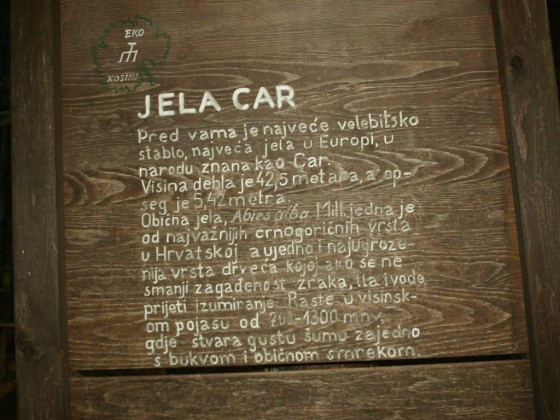 EKO
KOSINJ
JELA CAR
Pred vama je najveće velebitsko
stablo, najveća jela u Europi, u
narodu znana kao Car.
Visina debla je 42,5 metara, a op-
seg je 5,42 metra.
Obična jela, Abies alba Mill. jedna je
od najvažnijih crnogoričnih vrsta
u Hrvatskoj a ujedno i najugrože-
nija vrsta drveća kojoj ako se ne
smanji zagađenost zraka, tla i vode
prijeti izumiranje. Raste u visinsk-
om pojasu od -1300 mnv.
gdje stvara gustu šumu zajedno
s bukvom i običnom smrekom.